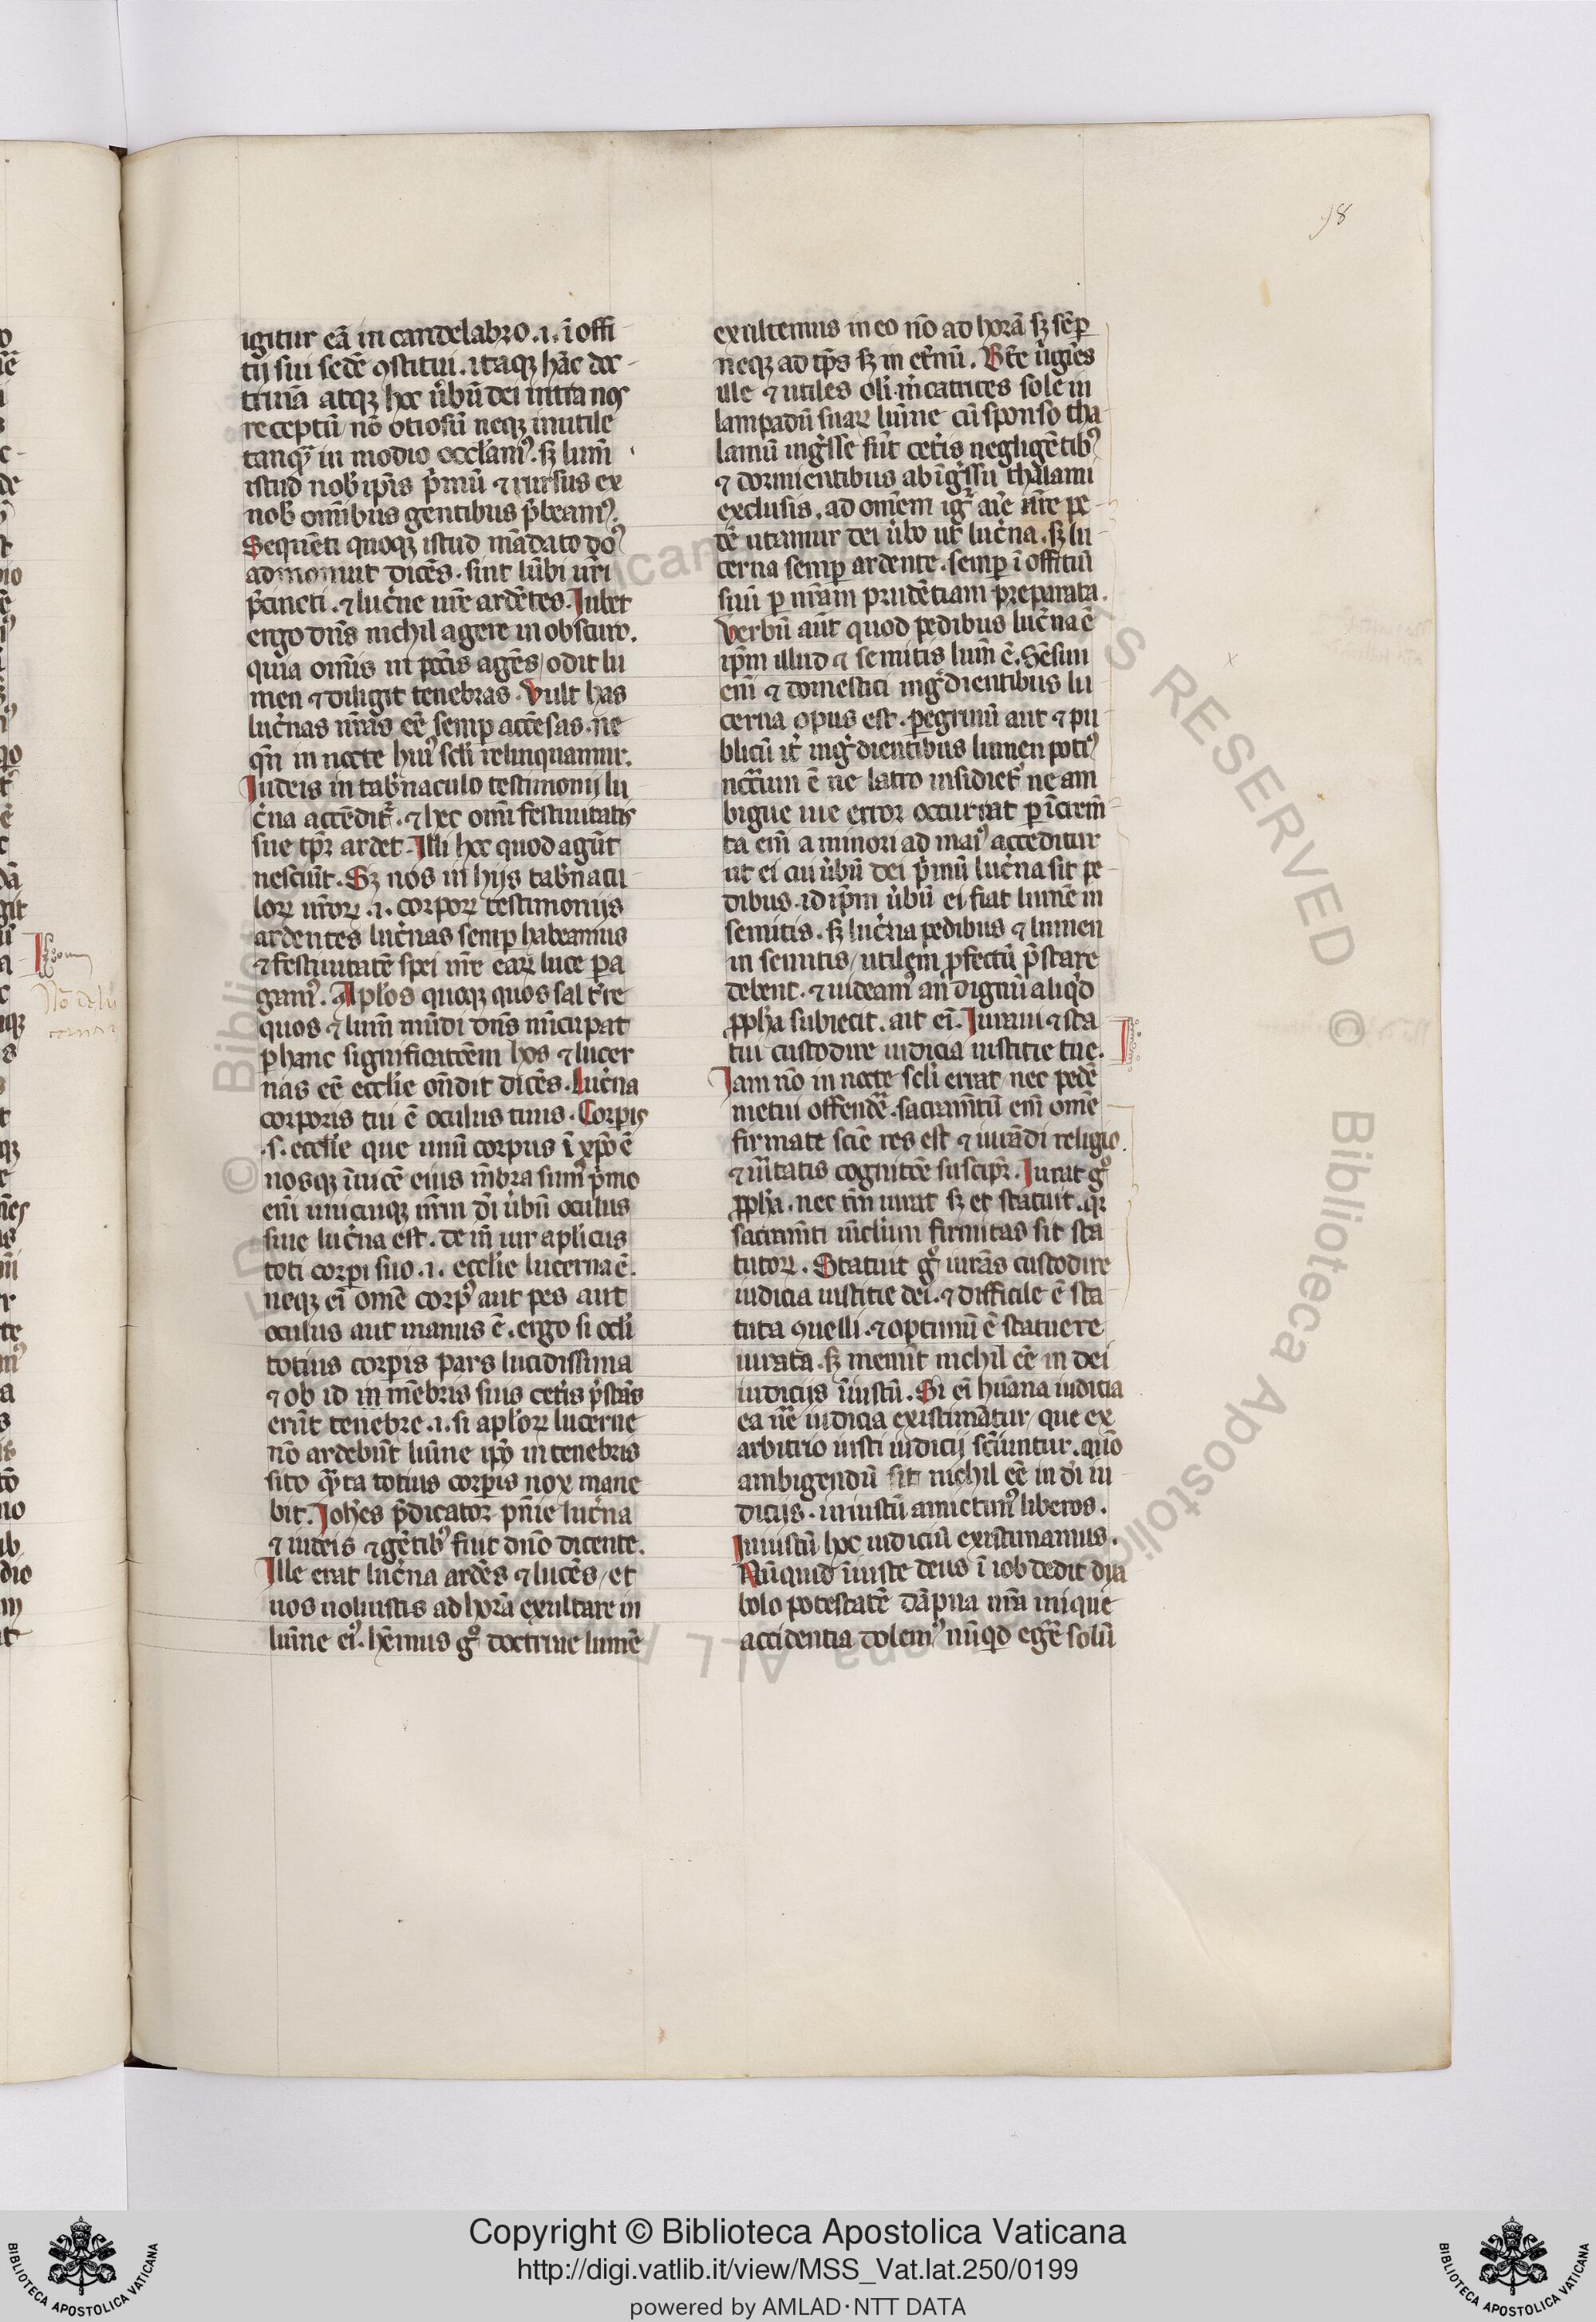 98
igitur eā in candelabro .i. ī offi
tij sui sedē ꝯstitui. itaqꝫ hāc doc
trinā atqꝫ hoc u̓bū dei intra nos
receptū nō otiosū neqꝫ inutile
tanqꝫ in modio occl̓amꝰ. sꝫ lum̄
istud nob̓ ip̄is p̓mū ⁊ rursus ex
nob̓ omībus gentibus p̄beamꝰ.
Sequēti quoqꝫ istud mādato do
admonuit dicēs. sint lūbi ur̄i
p̄cincti. ⁊ luc̓ne ur̄e ardētes. Iubet
ergo dn̄s nichil agere in obscuro.
quia omīs in pcc̄is agēs odit lu
men ⁊ diligit tenebras. Vult has
luc̓nas nr̄as eē semꝑ accēsas. ne
qn̄ in nocte huiꝰ scl̓i relinquamur.
Iudeis in tab̓naculo testimonij lu
c̓na accēdit̉. ⁊ hec omī festiuitatis
sue tp̄r ardet. Illi hec quod agūt
nesciūt. Sꝫ nos in hijs tab̓nacu
loꝝ nr̄oꝝ .i. corpoꝝ testimonijs
ardentes luc̓nas semꝑ habeamus
⁊ festiuitatē spei nr̄e eaꝝ luce ꝑa
gamꝰ. Apl̓os quoqꝫ quos sal t̓re
quos ⁊ lum̄ mūdi dn̄s nūcupat
ꝑ hanc significatōem hos ⁊ lucer
nas eē eccl̓ie on̄dit dicēs. Luc̓na
corporis tui ē oculus tuus. Corꝑis
.s. eccl̓ie que unū corpus ī xp̄o ē
nosqꝫ īuicē eius mēbra sumꝰ p̓mo
enī unicuiqꝫ nr̄m dī u̓bū oculus
siue luc̓na est. de in̄ uir apl̓icus
toti corꝑi suo .i. eccl̓ie lucerna ē.
neqꝫ eī omē corpꝰ aut pes aut
oculus aut manus ē. ergo si ocl̓i
totius corꝑis pars lucidissima
⁊ ob id in mēbris suis cet̓is p̄stās
erūt tenebre .i. si apl̓oꝝ lucerne
nō ardebūt lumīe xp̄o in tenebris
sito qꝫta totius corꝑis nox mane
bit. Ioh̄es p̄dicator pn̄ie luc̓na
⁊ iudeis ⁊ gētibꝰ fuit dn̄o dicente.
Ille erat luc̓na ardēs ⁊ lucēs et
uos uoluistis ad horā exultare in
lumīe eiꝰ. hēmus gͦ doctrine lumē
exultemus in eo nō ad horā sꝫ sēꝑ
neqꝫ ad tp̄s sꝫ in et̓nū. Bt̄e u̓gīes
ille ⁊ utiles olī m̓catrices sole in
lampadū suaꝝ lumīe cū sponso tha
lamū ing̓sse sūt cet̓is negligētibꝰ
⁊ dormientibus ab īg̓ssu thalami
exclusis. ad omēm ig̉ aīe nr̄e pe
dē utamur dei u̓bo ut luc̓na. sꝫ lu
cerna semꝑ ardente. semꝑ ī offitiū
suū ꝑ nr̄am prudētiam preparata.
Verbū aūt quod pedibus luc̓na ē
ip̄m illud ⁊ semitis lum̄ ē. Sēsim
enī ⁊ domestici ing̓dientibus lu
cerna opus est. ꝑegrinū aut ⁊ pu
blicū it̓ ing̓dientibus lumen potiꝰ
ncc̄ium ē ne latro insidiet̉ ne am
bigue uie error occurrat ꝑ īcrem̄
ta enī a minori ad maiꝰ acceditur
ut ei cui u̓bū dei p̓mū luc̓na sit pe
dibus. id ip̄m u̓bū ei fiat lumē in
semitis. sꝫ luc̓na pedibus ⁊ lumen
in semitis utilem ꝓfectū p̄stare
debent. ⁊ uideamꝰ an dignū aliq̓d
ꝓph̄a subiecit. ait eī. Iuraui ⁊ sta
tui custodire iudicia iustitie tue.
Iam nō in nocte scl̓i errat nec pedē
metui offendē. sacramētū enī omē
firmate sciē res est ⁊ iurādi religio
⁊ u̓itatis cognitōē suscipit̉. Iurat gͦ
ꝓph̄a. nec tm̄ iurat sꝫ et statuit. qꝛ
sacramēti inclīum firmitas sit sta
tutoꝝ. Statuit gͦ iurās custodire
iudicia iustitie dei. ⁊ difficile ē sta
tuta ꝯuelli. ⁊ optimū ē statuere
iurata. sꝫ memīt nichil eē in dei
iudicijs īiustū. Si eī hūana iudicia
ea uē iudicia existimātur que ex
arbitrio iusti iudicij sc̓iuntur. quō
ambigendū sit nichil eē in dī iu
dicijs. iniustū amictimꝰ liberos.
Iniustū hoc iudiciū existimamus.
Nūquid īiuste deus ī iob dedit dya
bolo potestatē dāpna nr̄a inique
accidentia dolemꝰ nūqd̓ egr̄e solū